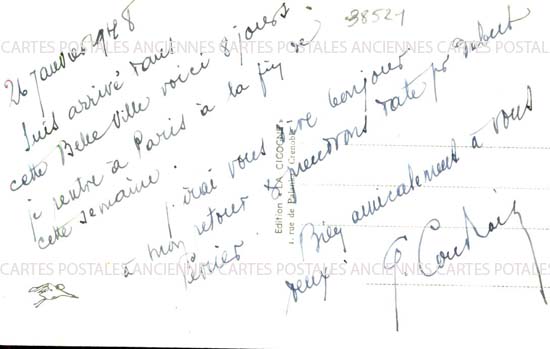 38521
26 Janvier 1948
Suis arrivé dans
cette Belle Ville voici 8 jours
je rentre à Paris à la fin de
cette semaine.
J'irai vous dire bonjour
à mon retour & prendrons date pr début
Février.
Bien amicalement à vous
deux.
Edition "LA CICOGNE"
1, rue de Grenoble
CARTES POSTALES ANCIENNES CARTES POSTALES ANCIENNES CARTES POSTALES
CARTES POSTALES ANCIENNES CARTES POSTALES ANCIENNES CARTES POTALES